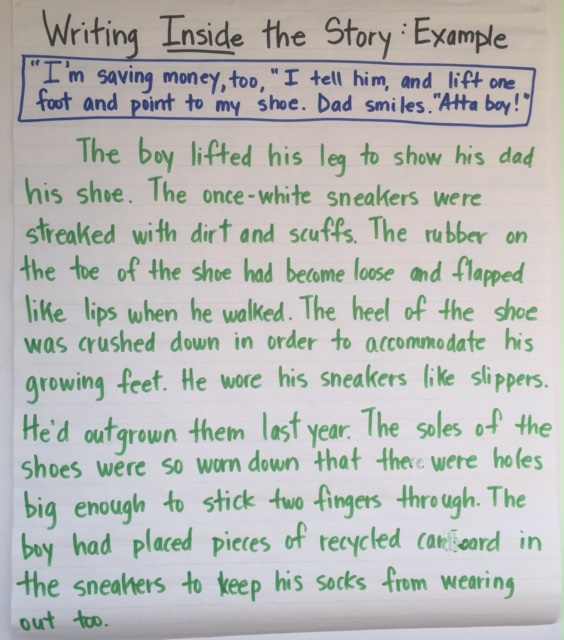 Writing Inside the Story: Example
"I'm saving money, too," I tell him, and lift one
foot and point to my shoe. Dad smiles. "Atta boy!"
The boy lifted his leg to show his dad
his shoe. The once-white sneakers were
streaked with dirt and scuffs. The rubber on
the toe of the shoe had become loose and flapped
like lips when he walked. The heel of the shoe
was crushed down in order to accommodate his
growing feet. He wore his sneakers like slippers.
He'd outgrown them last year. The soles of the
shoes were so worn down that there were holes
big enough to stick two fingers through. The
boy had placed pieces of recycled cardboard in
the sneakers to keep his socks from wearing
out too.